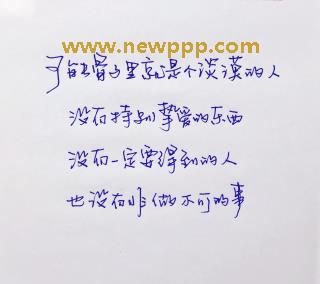 www.newppp.com
可能骨子里就是个淡漠的人
没有特别挚爱的东西
没有一定要得到的人
也没有非做不可的事